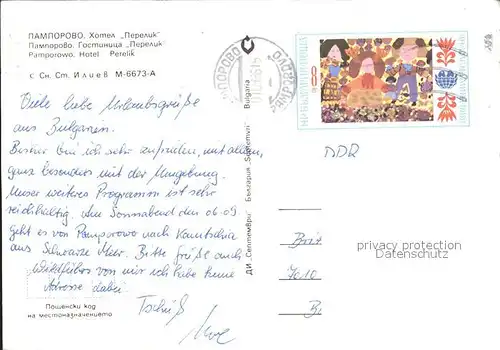 ПАМПОРОВО. Хотел „Перелик"
Пампорово. Гостиница „Перелик"
Pamporowo. Hotel Perelik
с Сн. Ст. Илиев М-6673-А
Viele liebe Urlaubsgrüße
aus Bulgarien.
Bisher bin ich sehr zufrieden, mit allem,
ganz besonders mit der Umgebung.
Unser weiteres Programm ist sehr
reichhaltig. Am Sonnabend den 06.09
geht es von Pamporowo nach Kamtschia
ans Schwarze Meer. Bitte grüße auch
von mir ich habe keine
Adresse dabei.
Tschüß
Uwe
Пощенски код
на местоназначението
ДИ „Септември" България "Septemvri" Bulgaria
ПАМПОРОВО
8
DDR
Brit
7010
privacy protection
Datenschutz